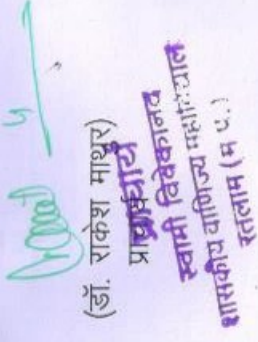 (डॉ. राकेश माथुर)
प्राचार्य
प्राचार्य
स्वामी विवेकानंद
शासकीय वाणिज्य महाविद्यालय
रतलाम (म.प्र.)